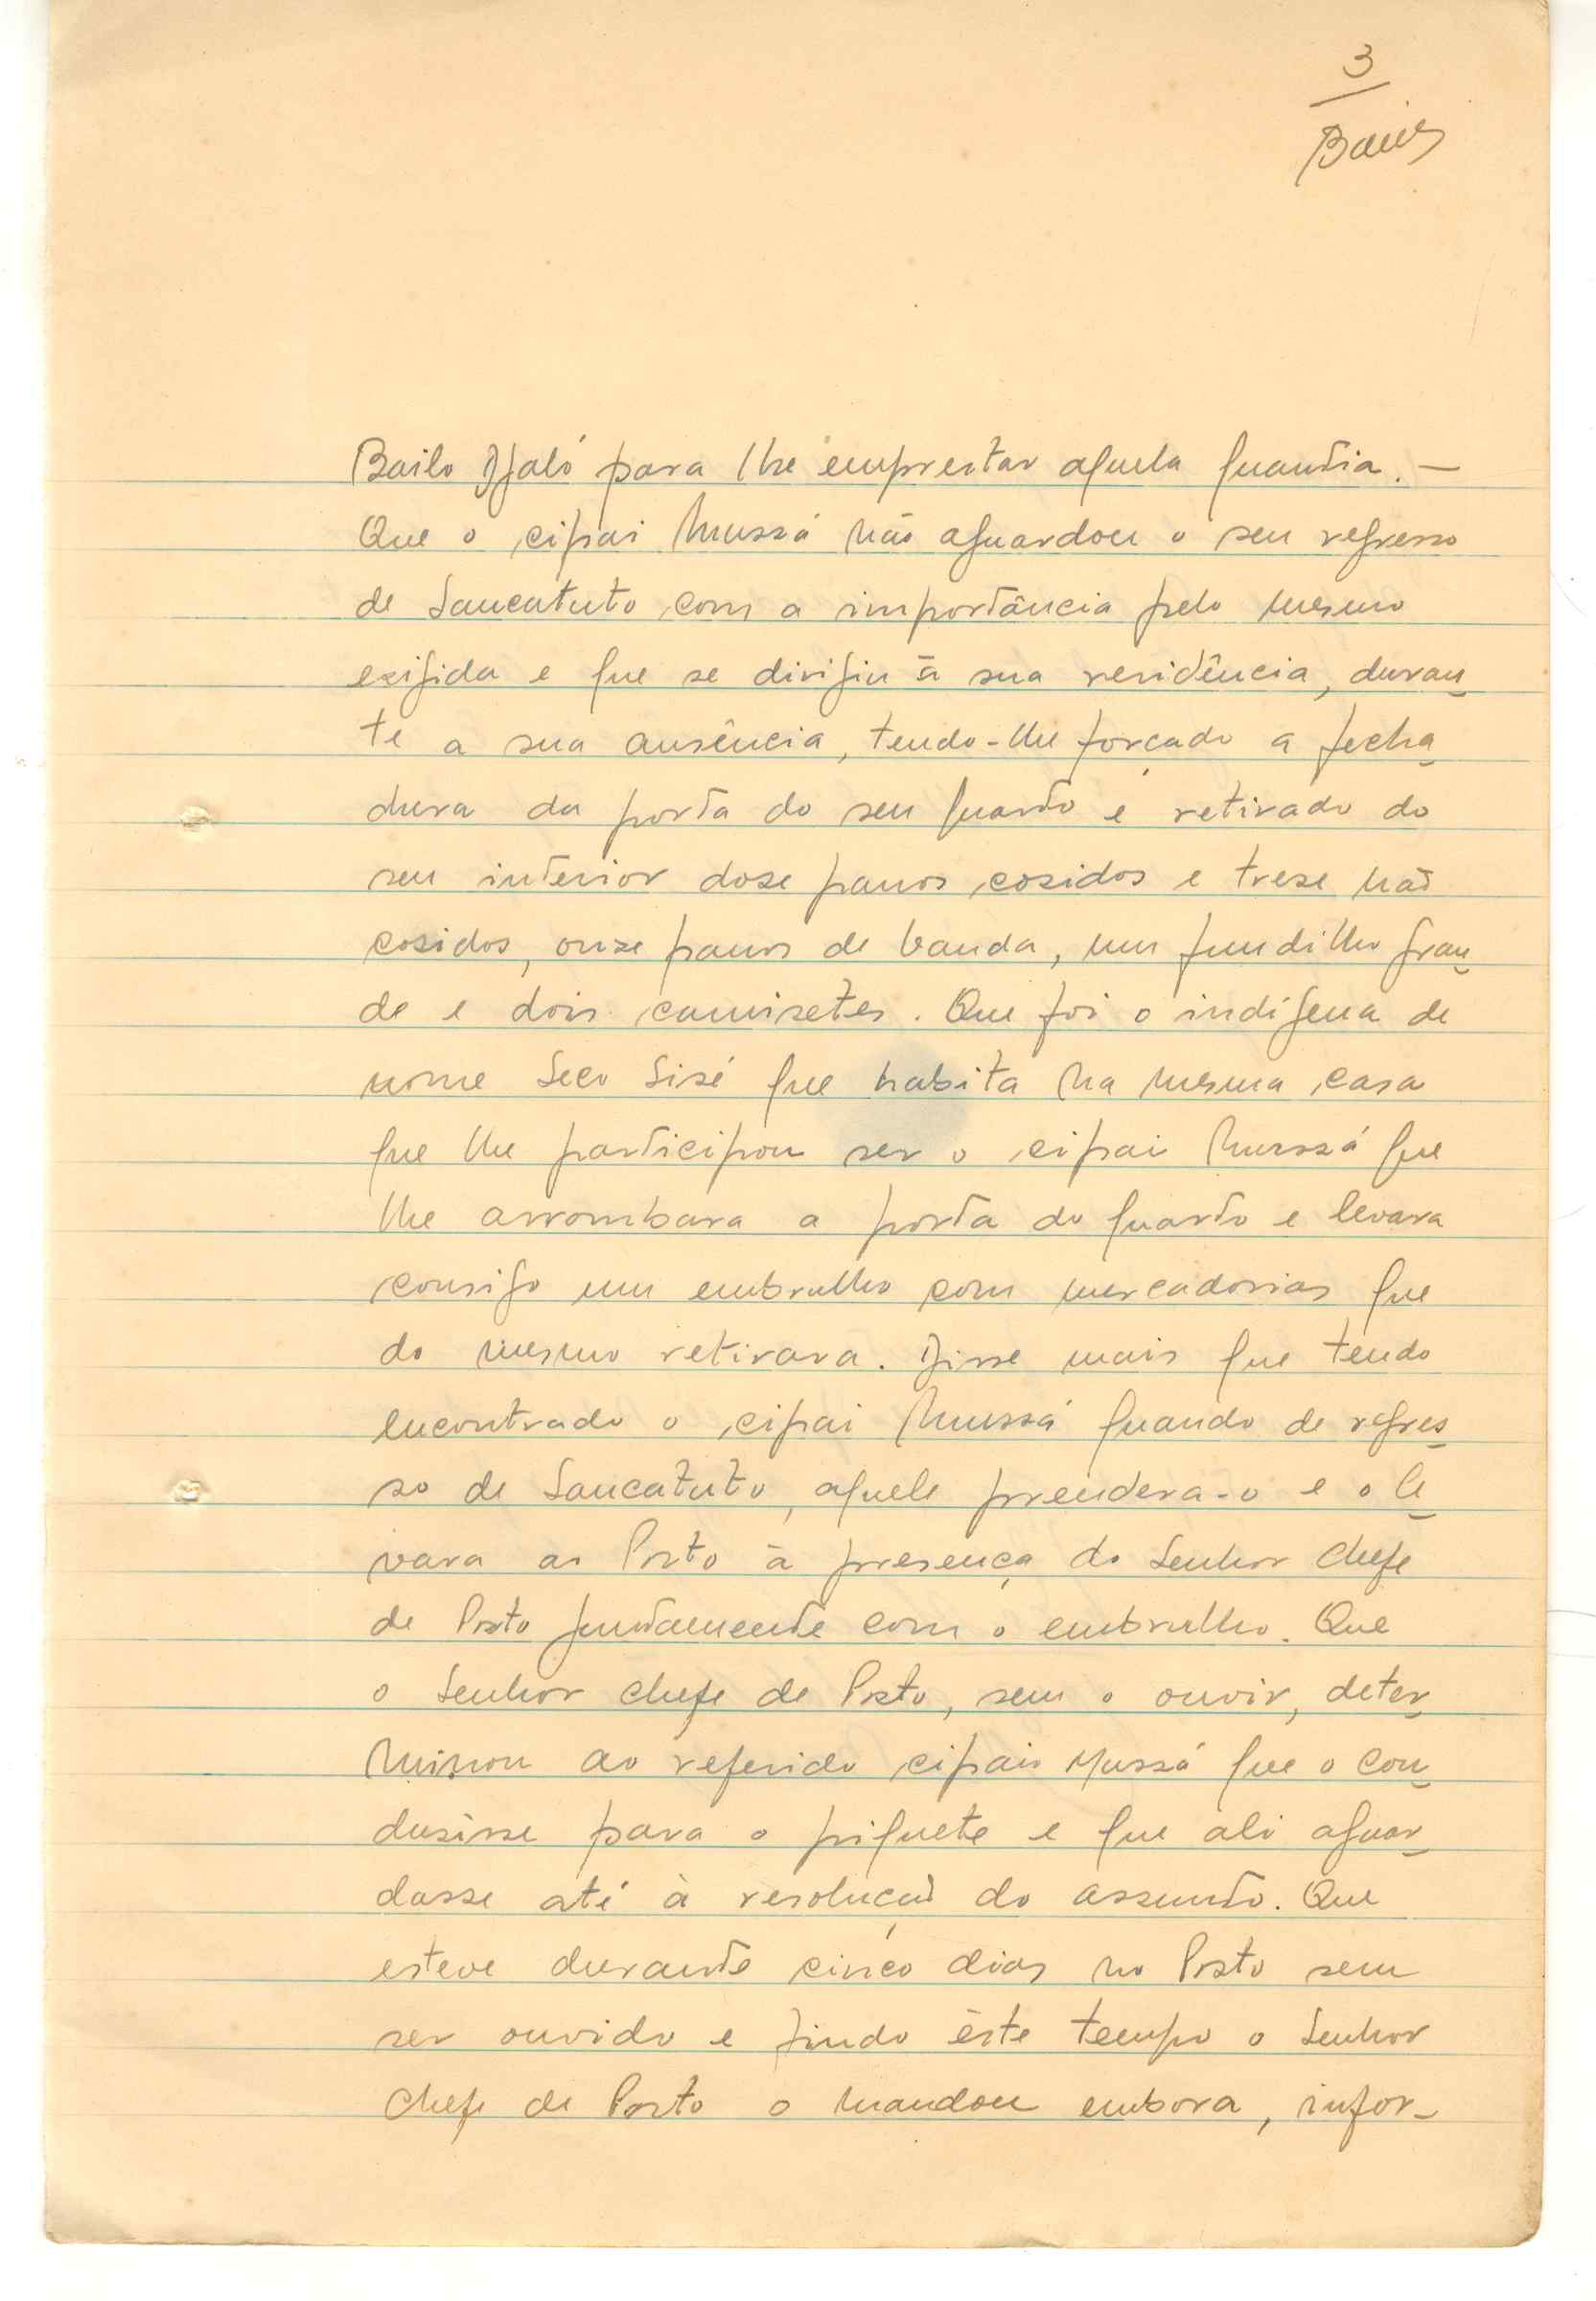 3
Bailo Djaló para lhe emprestar aquela quantia. —
Que o cipai Mussá não aguardou o seu regresso
de Sancatuto com a importância pelo mesmo
exigida e que se dirigiu à sua residência, duran-
te a sua ausência, tendo-lhe forçado a fecha-
dura da porta do seu quarto e retirado do
seu interior doze panos cosidos e treze não
cosidos, onze panos de banda, um fundilho gran-
de e dois camisetes. Que foi o indígena de
nome Seco Sisé que habita na mesma casa
que lhe participou ser o cipai Mussá que
lhe arrombara a porta do quarto e levara
consigo um embrulho com mercadorias que
do mesmo retirara. Disse mais que tendo
encontrado o cipai Mussá quando de regres-
so de Sancatuto, aquele prendera-o e o le-
vara ao Posto à presença do Senhor Chefe
de Posto juntamente com o embrulho. Que
o Senhor Chefe de Posto, sem o ouvir, deter-
minou ao referido cipai Mussá que o con-
dusisse para o piquete e que ali aguar-
dasse até à resolução do assunto. Que
esteve durante cinco dias no Posto sem
ser ouvido e findo êste tempo o Senhor
Chefe de Posto o mandou embora, infor-